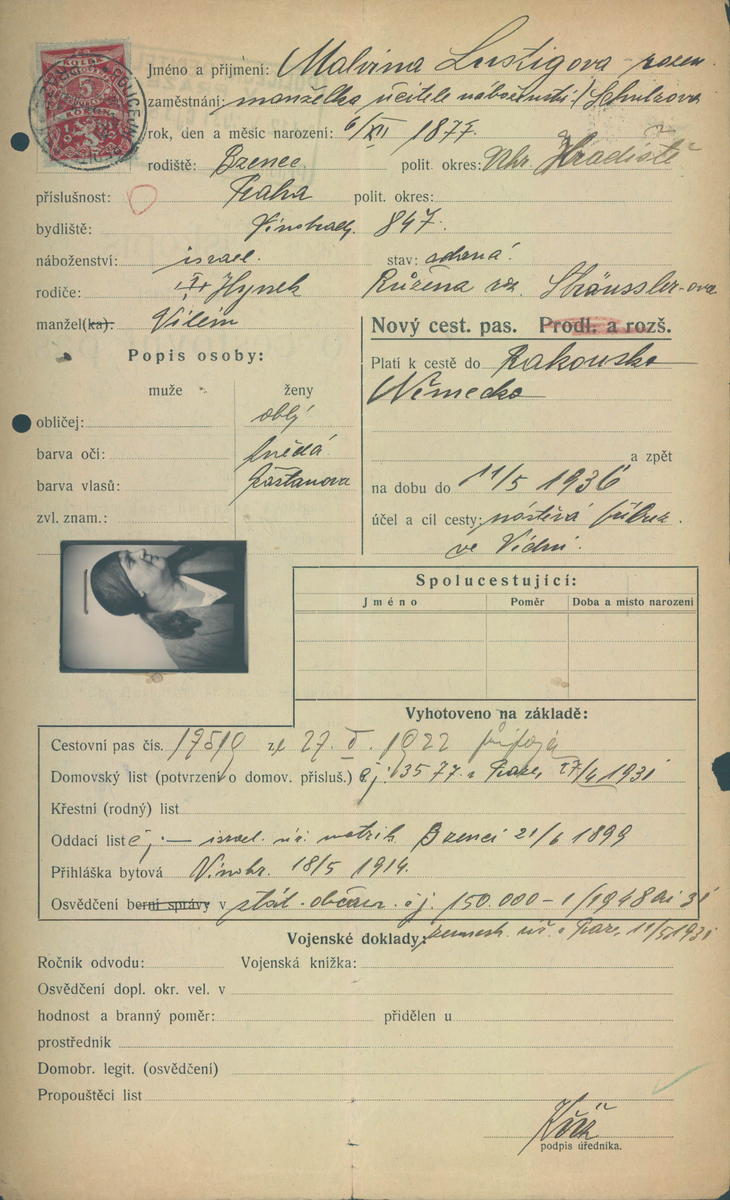 KOLEK
5
KORUNA
1919
Jméno a přijmení: Malvina Lustigova rozen.
zaměstnání: manželka učitele náboženství / Schulzova
rok, den a měsíc narození: 6/XII 1877.
rodiště: Bzenec polit. okres: Uhr. Hradiště
příslušnost: Praha polit. okres:
bydliště: Vinohrady 847.
náboženství: israel. stav: vdaná
rodiče: Hynek Růžena roz. Sträussler-ova
manžel(ka): Vilém
Nový cest. pas. Prodl. a rozš.
Platí k cestě do Rakouska
Německa
a zpět
na dobu do 11/5 1936
účel a cíl cesty: návštěva příbuz.
ve Vídni.
Popis osoby:
muže ženy
obličej: oblý
barva očí: hnědá
barva vlasů: kaštanova
zvl. znam.:
Spolucestující:
Jméno Poměr Doba a místo narození
Vyhotoveno na základě:
Cestovní pas čís. 17519 ze 27. V. 1922
Domovský list (potvrzení o domov. přísluš.) čj. 3577 v Praze, 27/4 1931
Křestní (rodný) list
Oddací list čj. — israel. úř. matrik Bzenci 21/6 1899
Přihláška bytová Vinohr. 18/5 1914.
Osvědčení berní správy v stát. občan. čj. 150.000-1/1948 ai 31
zemsk. úř. v Praze, 11/5 1931
Vojenské doklady:
Ročník odvodu: Vojenská knížka:
Osvědčení dopl. okr. vel. v
hodnost a branný poměr: přidělen u
prostředník
Domobr. legit. (osvědčení)
Propouštěcí list
podpis úředníka.